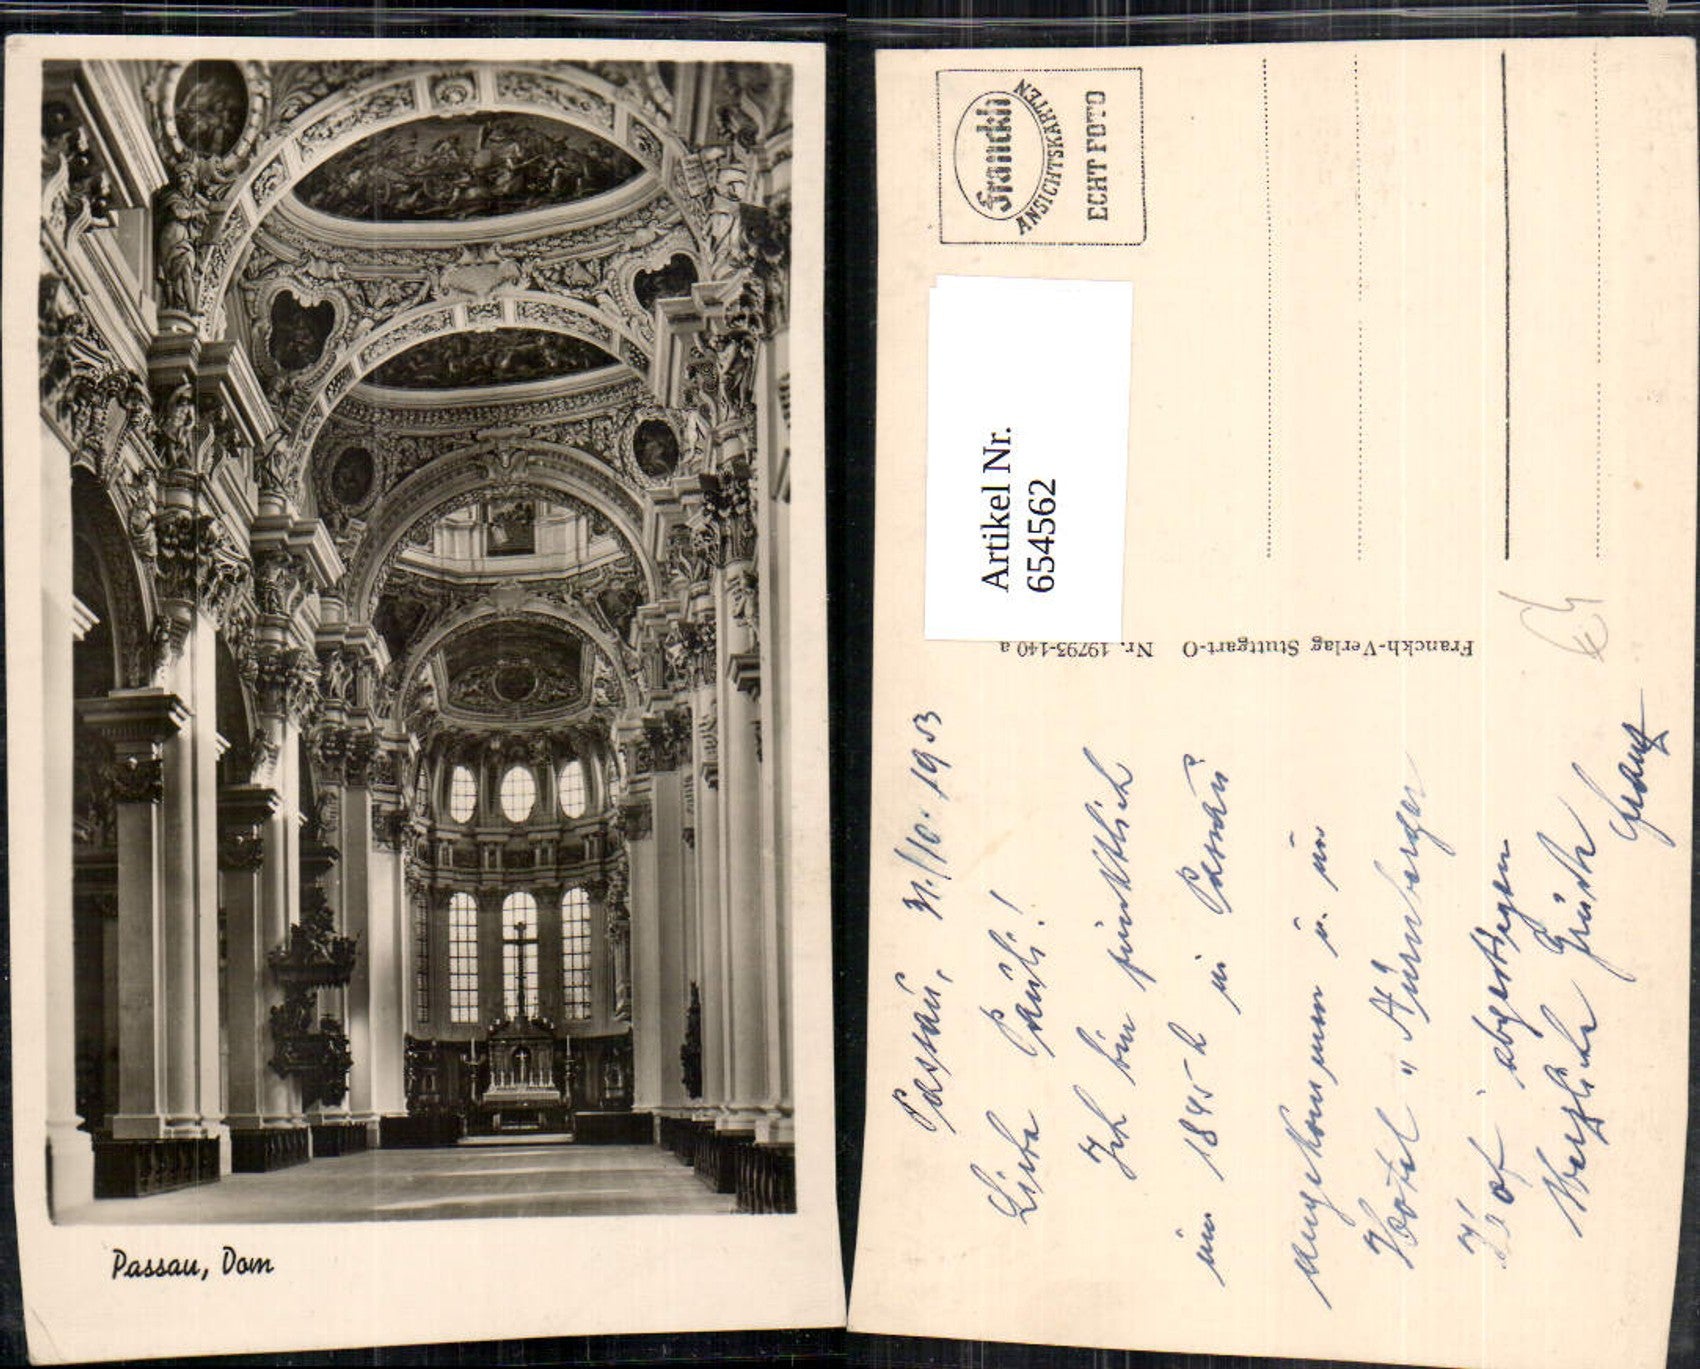 Passau, Dom
Franckh
ANSICHTSKARTEN
ECHT FOTO
Artikel Nr.
654562
Franckh-Verlag Stuttgart-O Nr. 19795-140 a
Passau, 31./10. 1953
Liebe Pauli!
Ich bin pünktlich
um 1845 h in Passau
angekommen u. im
Hotel "Nürnberger
Hof" abgestiegen
Herzliche Grüße
Franz